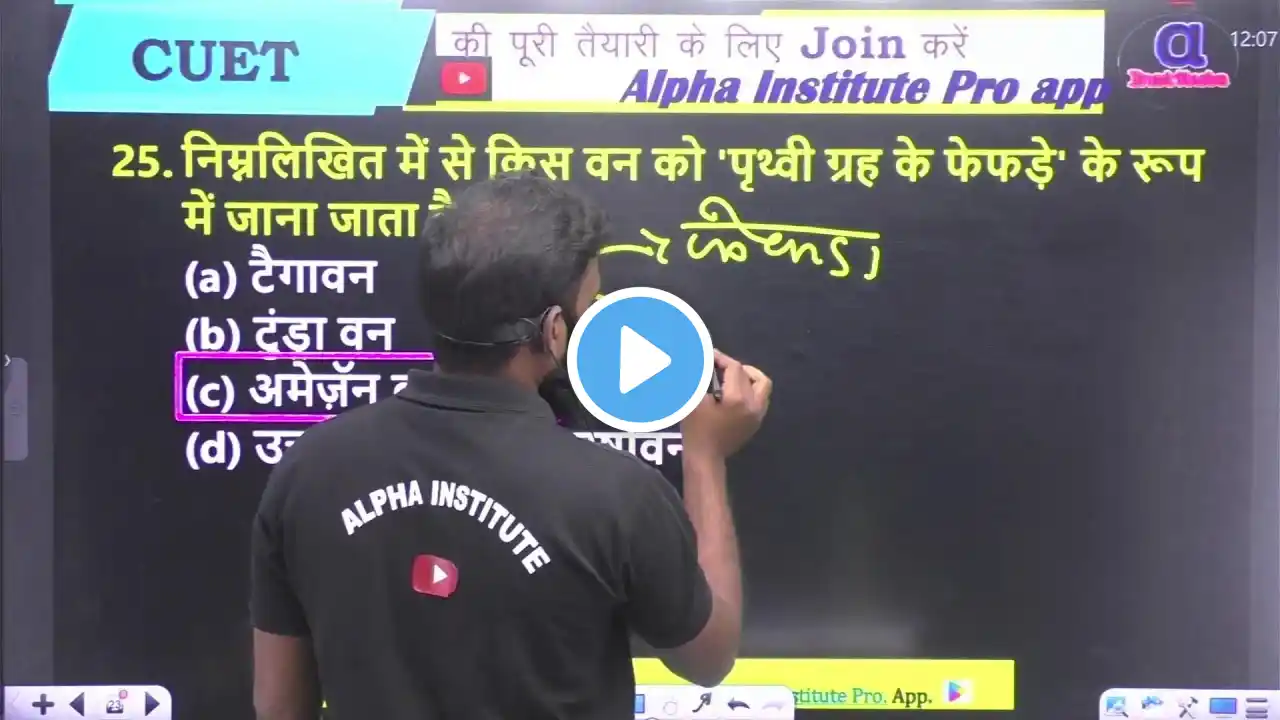 CUET
की पूरी तैयारी के लिए Join करें
Alpha Institute Pro app
12:07
25. निम्नलिखित में से किस वन को 'पृथ्वी ग्रह के फेफड़े' के रूप
में जाना जाता
(a) टैगावन
(b) टुंड्रा वन
(c) अमेज़ॅन
(d)
ALPHA INSTITUTE
stitute Pro. App.
23